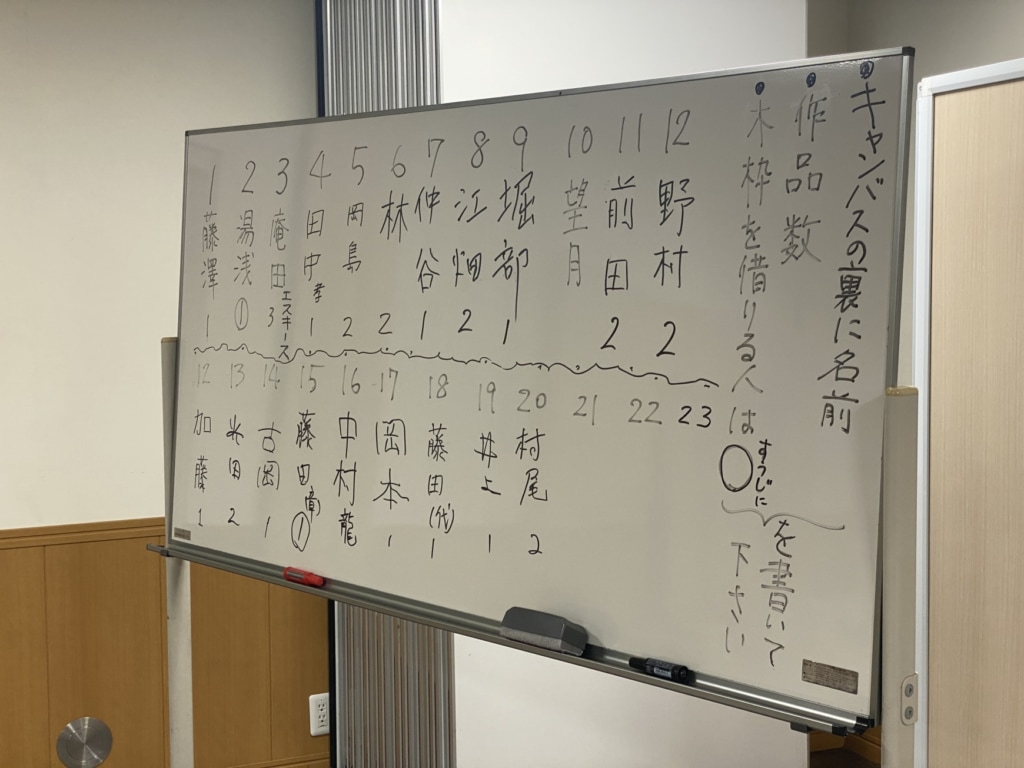 ・キャンバスの裏に名前
・作品数
・木枠を借りる人は○すうじに
を書いて下さい
12 野村 2
11 前田 2
10 望月
9 堀部 1
8 江畑 2
7 仲谷 1
6 林 2
5 岡島 2
4 田中孝 1
3 庵田 3 エスキース
2 湯浅 ①
1 藤澤 1
23
22
21
20 村尾 2
19 井上 1
18 藤田(代) 1
17 岡本 1
16 中村龍
15 藤田 ①
14 古岡 1
13 米田 2
12 加藤 1